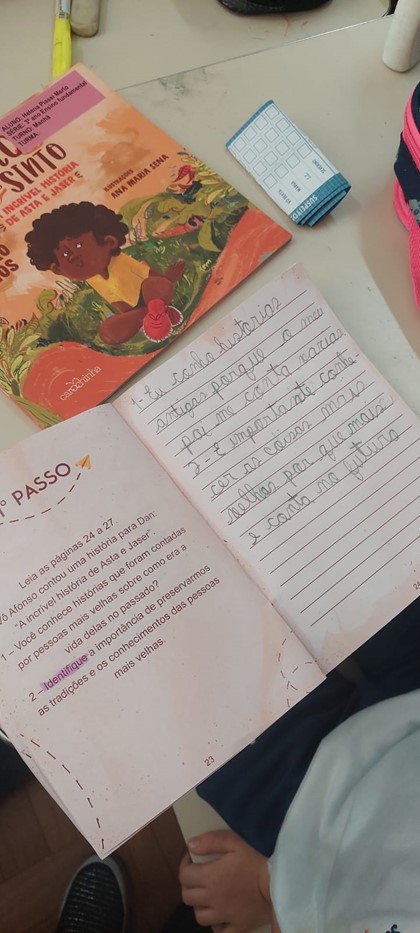 ALUNO: Helena Piassi Merlo
SÉRIE: 3º ano Ensino fundamental
TURNO: Manhã
TURMA:
SINTO
INCRÍVEL HISTÓRIA
DE ASTA E JASER
ILUSTRAÇÕES
ANA MARIA SENA
carochinha
SUSPEITOS
º PASSO
Leia as páginas 24 a 27.
Vô Afonso contou uma história para Dan:
"A incrível história de Asta e Jaser"
1 – Você conhece histórias que foram contadas
por pessoas mais velhas sobre como era a
vida delas no passado?
2 – Identifique a importância de preservarmos
as tradições e os conhecimentos das pessoas
mais velhas.
23
1- Eu conho historias
antigas porque o meu
pai me conta varias
2 - É importante conhe-
cer as coisas mais
velhas por que mais
e conta no futuro